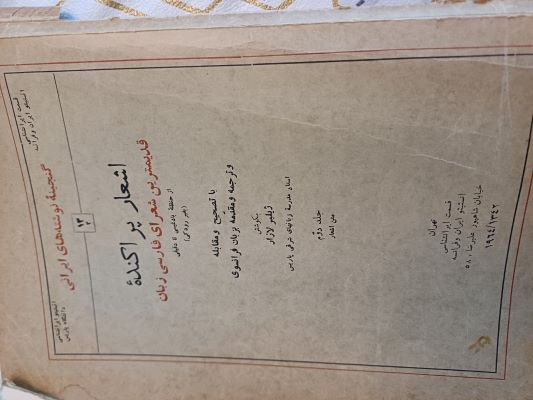 قسمت ایرانشناسی
انستیتو ایران و فرانسه
انستیتو ایرانشناسی
دانشگاه پاریس
گنجینهٔ نوشته‌های ایرانی
۱۳
اشعار پراکندهٔ
قدیمترین شعرای فارسی زبان
از حنظلهٔ بادغیسی تا دقیقی
(بغیر رودکی)
با تصحیح و مقابله
و ترجمه و مقدمه بزبان فرانسوی
بکوشش
ژیلبر لازار
استاد مدرسهٔ زبانهای شرقی پاریس
جلد دوم
متن اشعار
تهران
قسمت ایرانشناسی
انستیتو ایران و فرانسه
خیابان شاهپور علیرضا، ۵۸
۱۹۶۴/۱۳۴۲